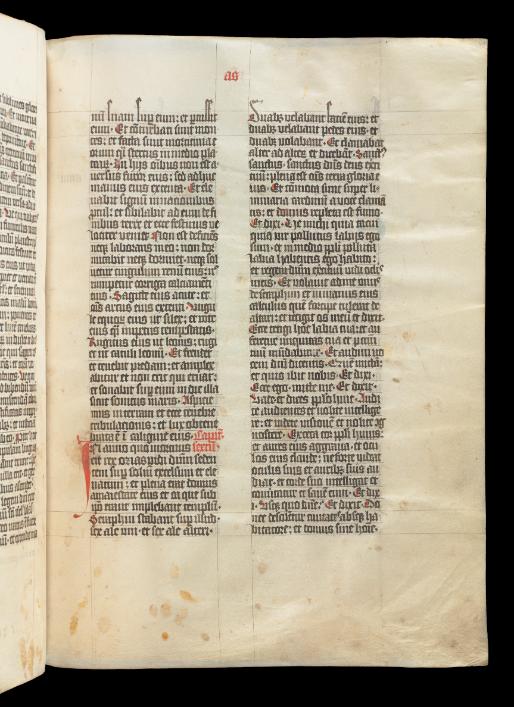 as
nū suam sup eum: et pcussit
eum· Et cōturbati sunt mon
tes: et facta sunt morticina e
orum qͥ stercus in medio pla
tearū· In hijs oībus non est a
versus furor eius: sed adhuc
manus eius extenta· Et ele
vabit signū in nacionibus
pcul: et sibilabit ad eum de fi
nibus terre et ecce festinus ve
lociter veniet· Non est deficiēs
neqꝫ laborans in eo: non dor
mitabit neqꝫ dormiet: neqꝫ sol
vetur cingulum renū eius: nͨ
rumpetur corrigia calciamēti
eius· Sagitte eius acute: et
oēs arcus eius extenti· Vngu
le equoꝝ eius ut silex: et rote
eius qͣ impetus tempestatis·
Rugitus eius ut leonis: rugi
et ut catuli leonū· Et frendet
et tenebit predam: et amplex
abitur et non erit qui eruat:
et sonabit sup eum in die illa
sicut sonitus maris· Aspicie
mus in terram et ecce tenebre
tribulacionis: et lux obtene
brata ē ī caligine eius· Capitͫ
In anno quo mortuus sextū·
est rex ozias vidi dīum seden
tem sup soliū excelsum et ele
vatum: et plena erat domus
a maiestate eius et ea que sub
ipo erant implebant templū·
Seraphin stabant sup illud:
sex ale uni et sex ale alteri·
Duabꝫ velabant faciē eius: et
duabꝫ velabant pedes eius· et
duabꝫ volabant· Et clamabāt
alter ad alterū et dicebāt· Sanctꝰ
sanctus sanctus dn̄s deus exer
cituū: plena est om̄s terra gloria e
ius· Et cōmota sunt super li
minaria cardinū a voce clamā
tis: et domus repleta est fumo·
Et dixi· Ve michi quia tacui
quia vir pollutus labijs ego
sum: et in medio ppli polluta
labia habentis ego habito:
et regem dīum exercituū vidi oclis
meis· Et volavit ad me unus
de seraphin et in manu eius
calculus quē forcipe tulerat de
altari: et tetigit os meū et dixit·
Ecce tetigi hoc labia tua: et au
feretur iniquitas tua et peccā
tuū mūdabitur· Et audivi vo
cem dīi dicentis· Quē mittā:
et quis ibit nobis· Et dixi·
Ecce ego· mitte me· Et dixit·
Vade et dices pplo huic· Audi
te audientes et nolite intellige
re: et videte visionē et nolite cog
noscere· Exceca cor ppli huius:
et aures eius aggrava· et ocu
los eius claude: ne forte videat
oculis suis et auribꝫ suis au
diat· et corde suo intelligat et
convertatur et sanē eum· Et dixi
Usqꝫ quo dn̄e· Et dixit· Do
nec desolentur civitates absqꝫ ha
bitatore: et domus sine hoīe·